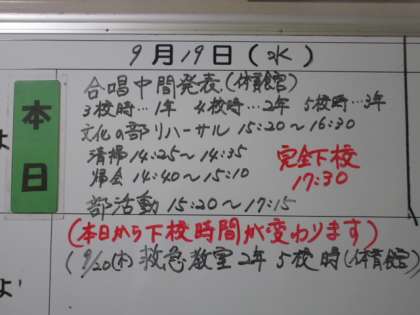 9月19日(水)
本日
合唱中間発表(体育館)
3校時…1年 4校時…2年 5校時…3年
文化の部リハーサル 15:20～16:30
清掃 14:25～14:35
帰会 14:40～15:10
完全下校
17:30
部活動 15:20～17:15
(本日から下校時間が変わります)
(9/20(木) 救急教室 2年 5校時(体育館)